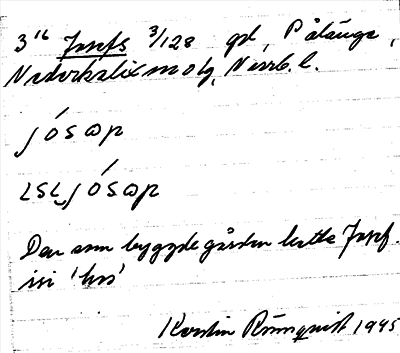 3¹⁶ Josefs 3/128 gd, Pålänge,
Nederkalix m o tg, Norrb. l.
jósωp
ɩsɩ jósωp
Den som byggde gården hette Josef.
isi 'hos'
Kerstin Rönnquist 1945